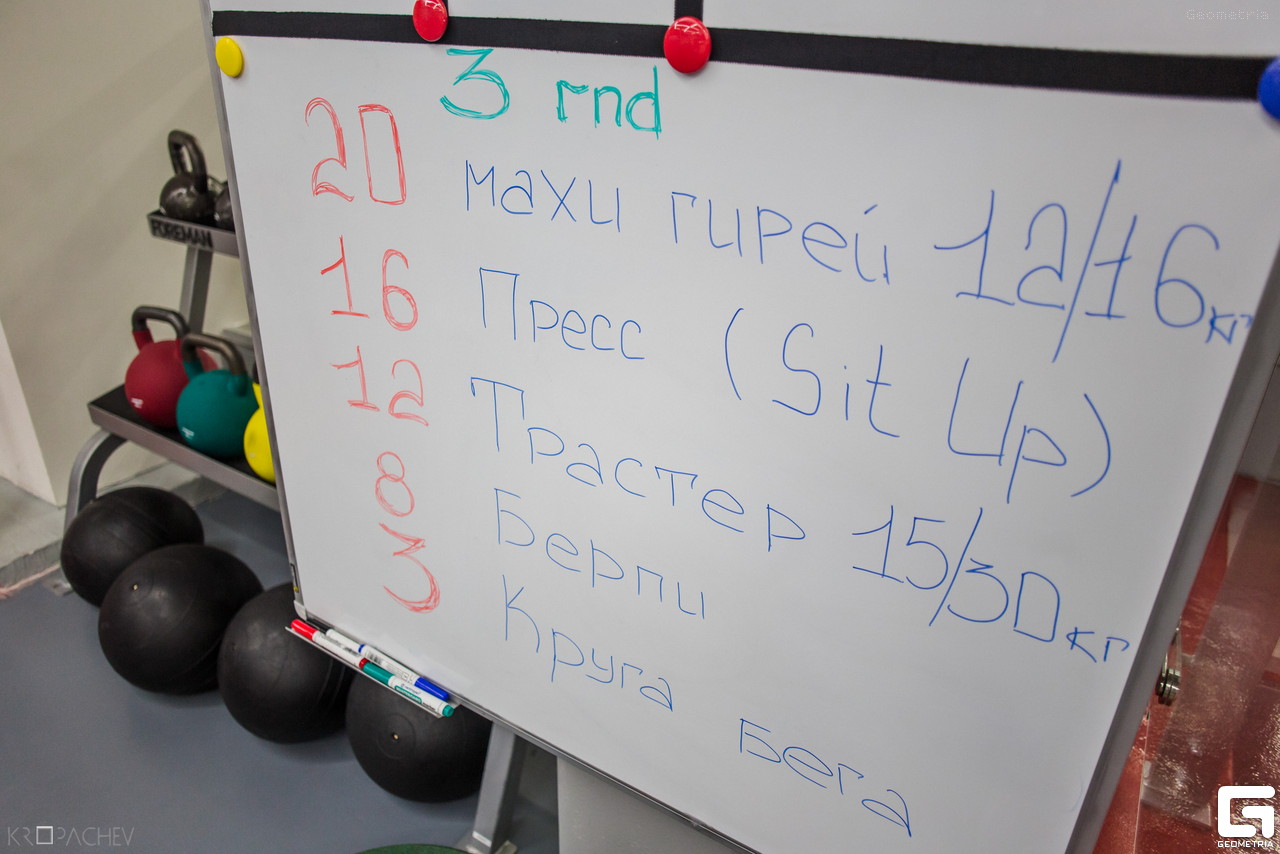 Geometria
3 rnd
20 махи гирей 12/16кг
16 Пресс (Sit Up)
12 Трастер 15/30кг
8 Берпи
3 Круга Бега
FOREMAN
KROPACHEV
GEOMETRIA